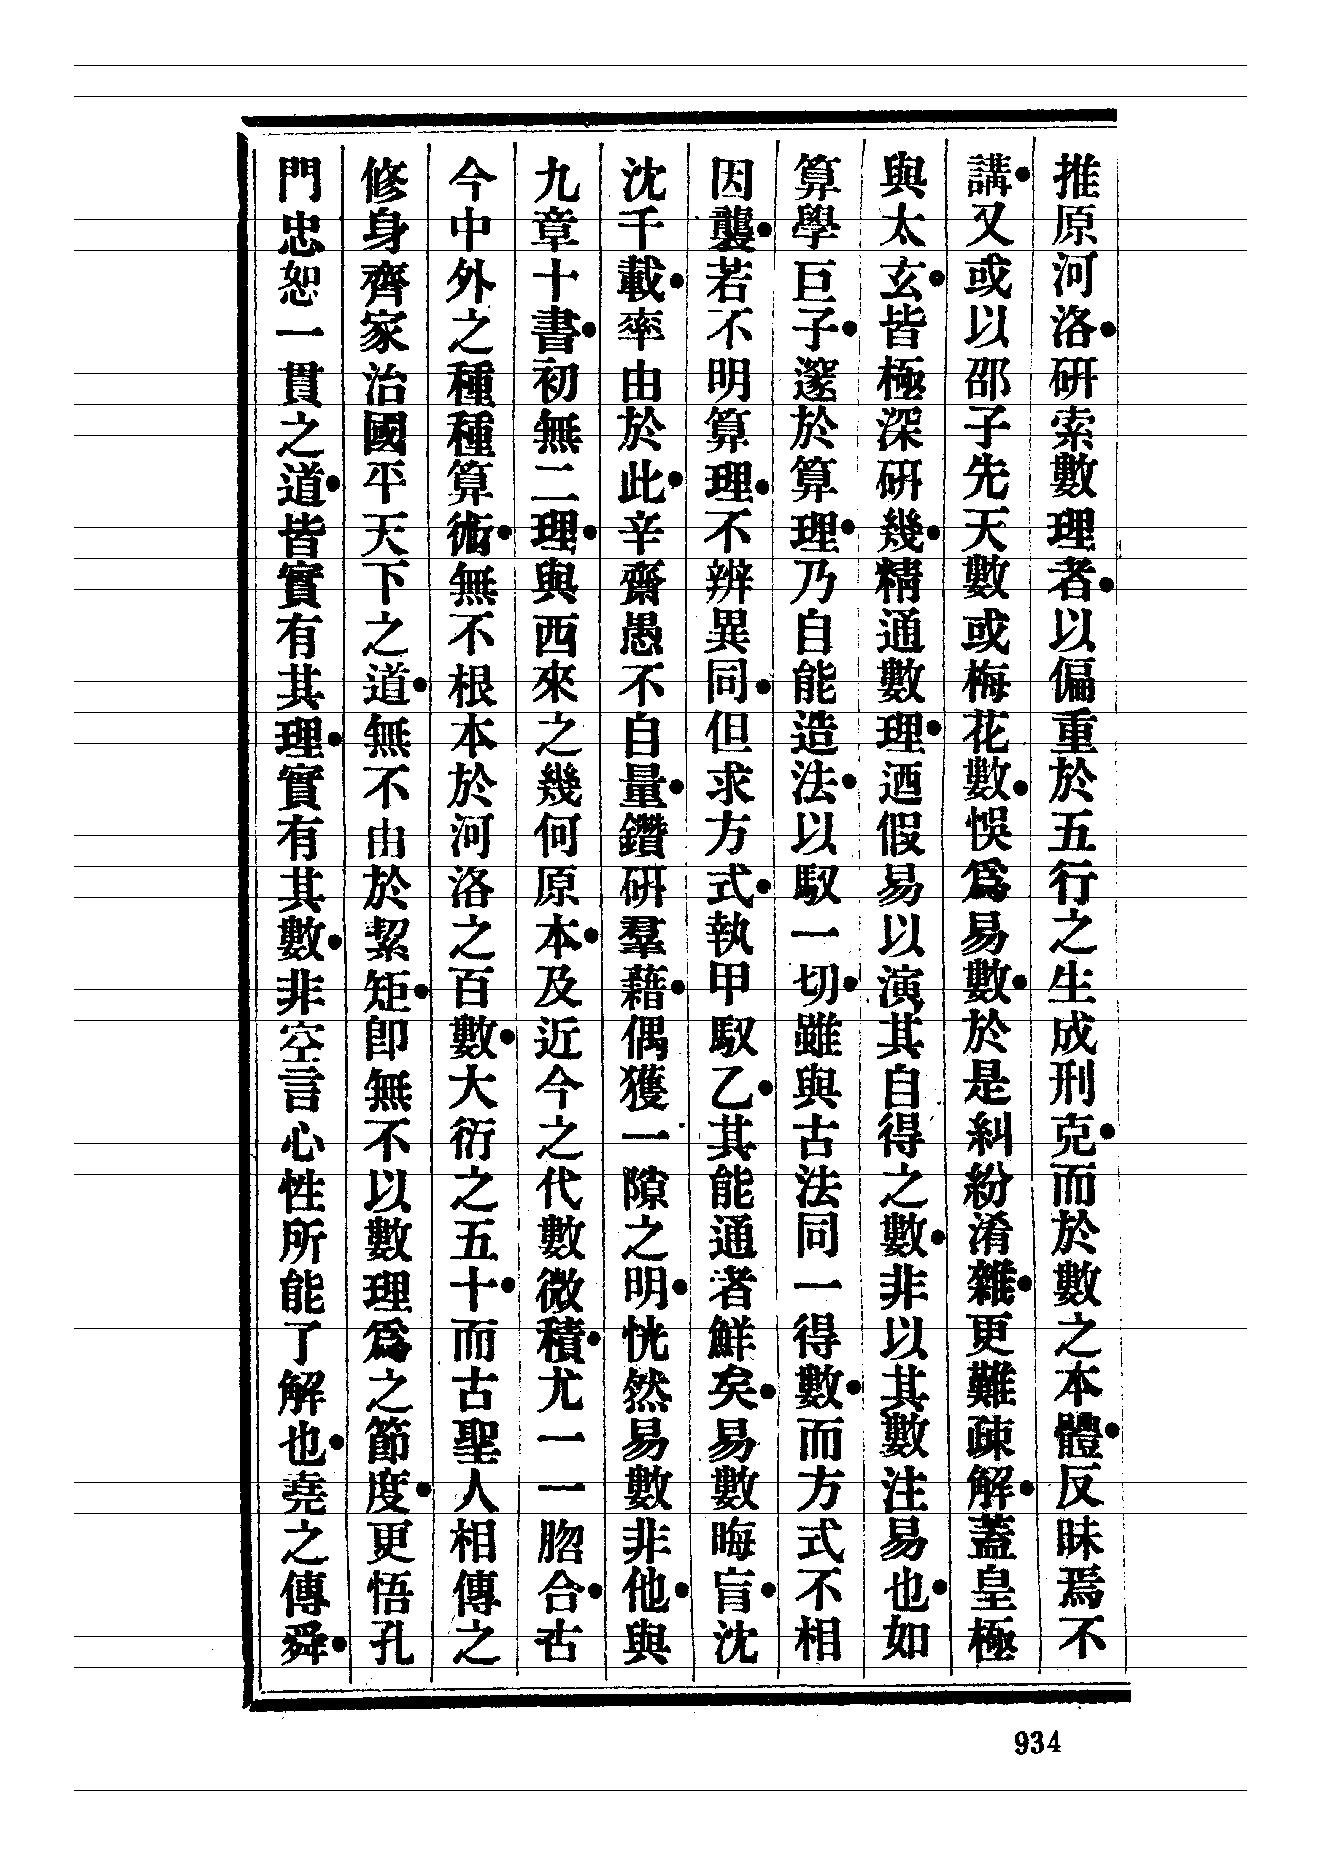 推原河洛●研索數理者●以偏重於五行之生成刑克●而於數之本體●反昧焉不
講●又或以邵子先天數或梅花數●悞爲易數●於是糾紛淆雜●更難疎解●蓋皇極
與太玄●皆極深研幾●精通數理●迺假易以演其自得之數●非以其數注易也●如
算學巨子●邃於算理●乃自能造法●以馭一切●雖與古法同一得數●而方式不相
因襲●若不明算理●不辨異同●但求方式●執甲馭乙●其能通者鮮矣●易數晦盲●沈
沈千載●率由於此●辛齋愚不自量●鑽研羣藉●偶獲一隙之明●恍然易數非他●與
九章十書●初無二理●與西來之幾何原本●及近今之代數微積●尤一一脗合●古
今中外之種種算術●無不根本於河洛之百數●大衍之五十●而古聖人相傳之
修身齊家治國平天下之道●無不由於絜矩●卽無不以數理爲之節度●更悟孔
門忠恕一貫之道●皆實有其理●實有其數●非空言心性所能了解也●堯之傳舜●
934